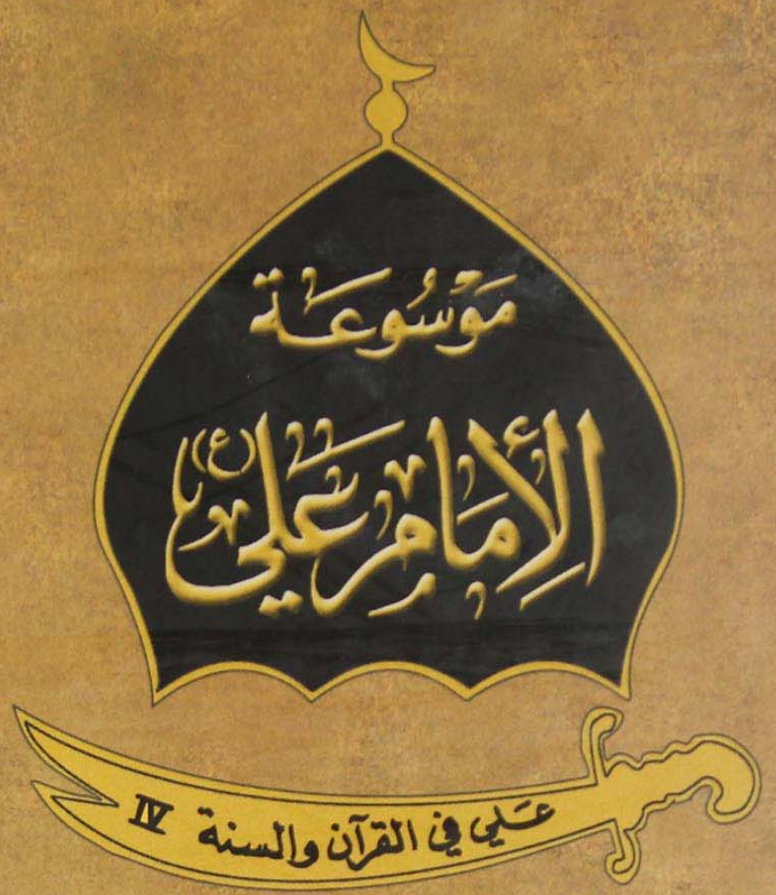 مَوْسُوعَة
الإِمَامِ عَلي (ع)
عَلي في القرآن والسنة IV